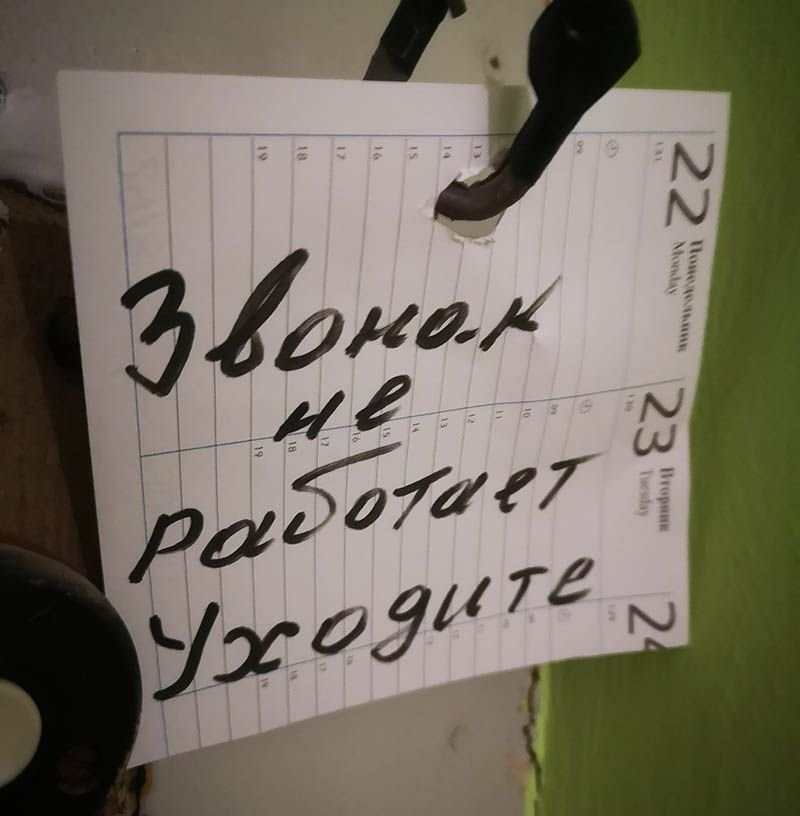 Звонок
не
работает
Уходите
22
Понедельник
Monday
09
13
14
15
16
17
18
19
23
Вторник
Tuesday
09
10
11
12
13
14
15
16
17
18
19
24